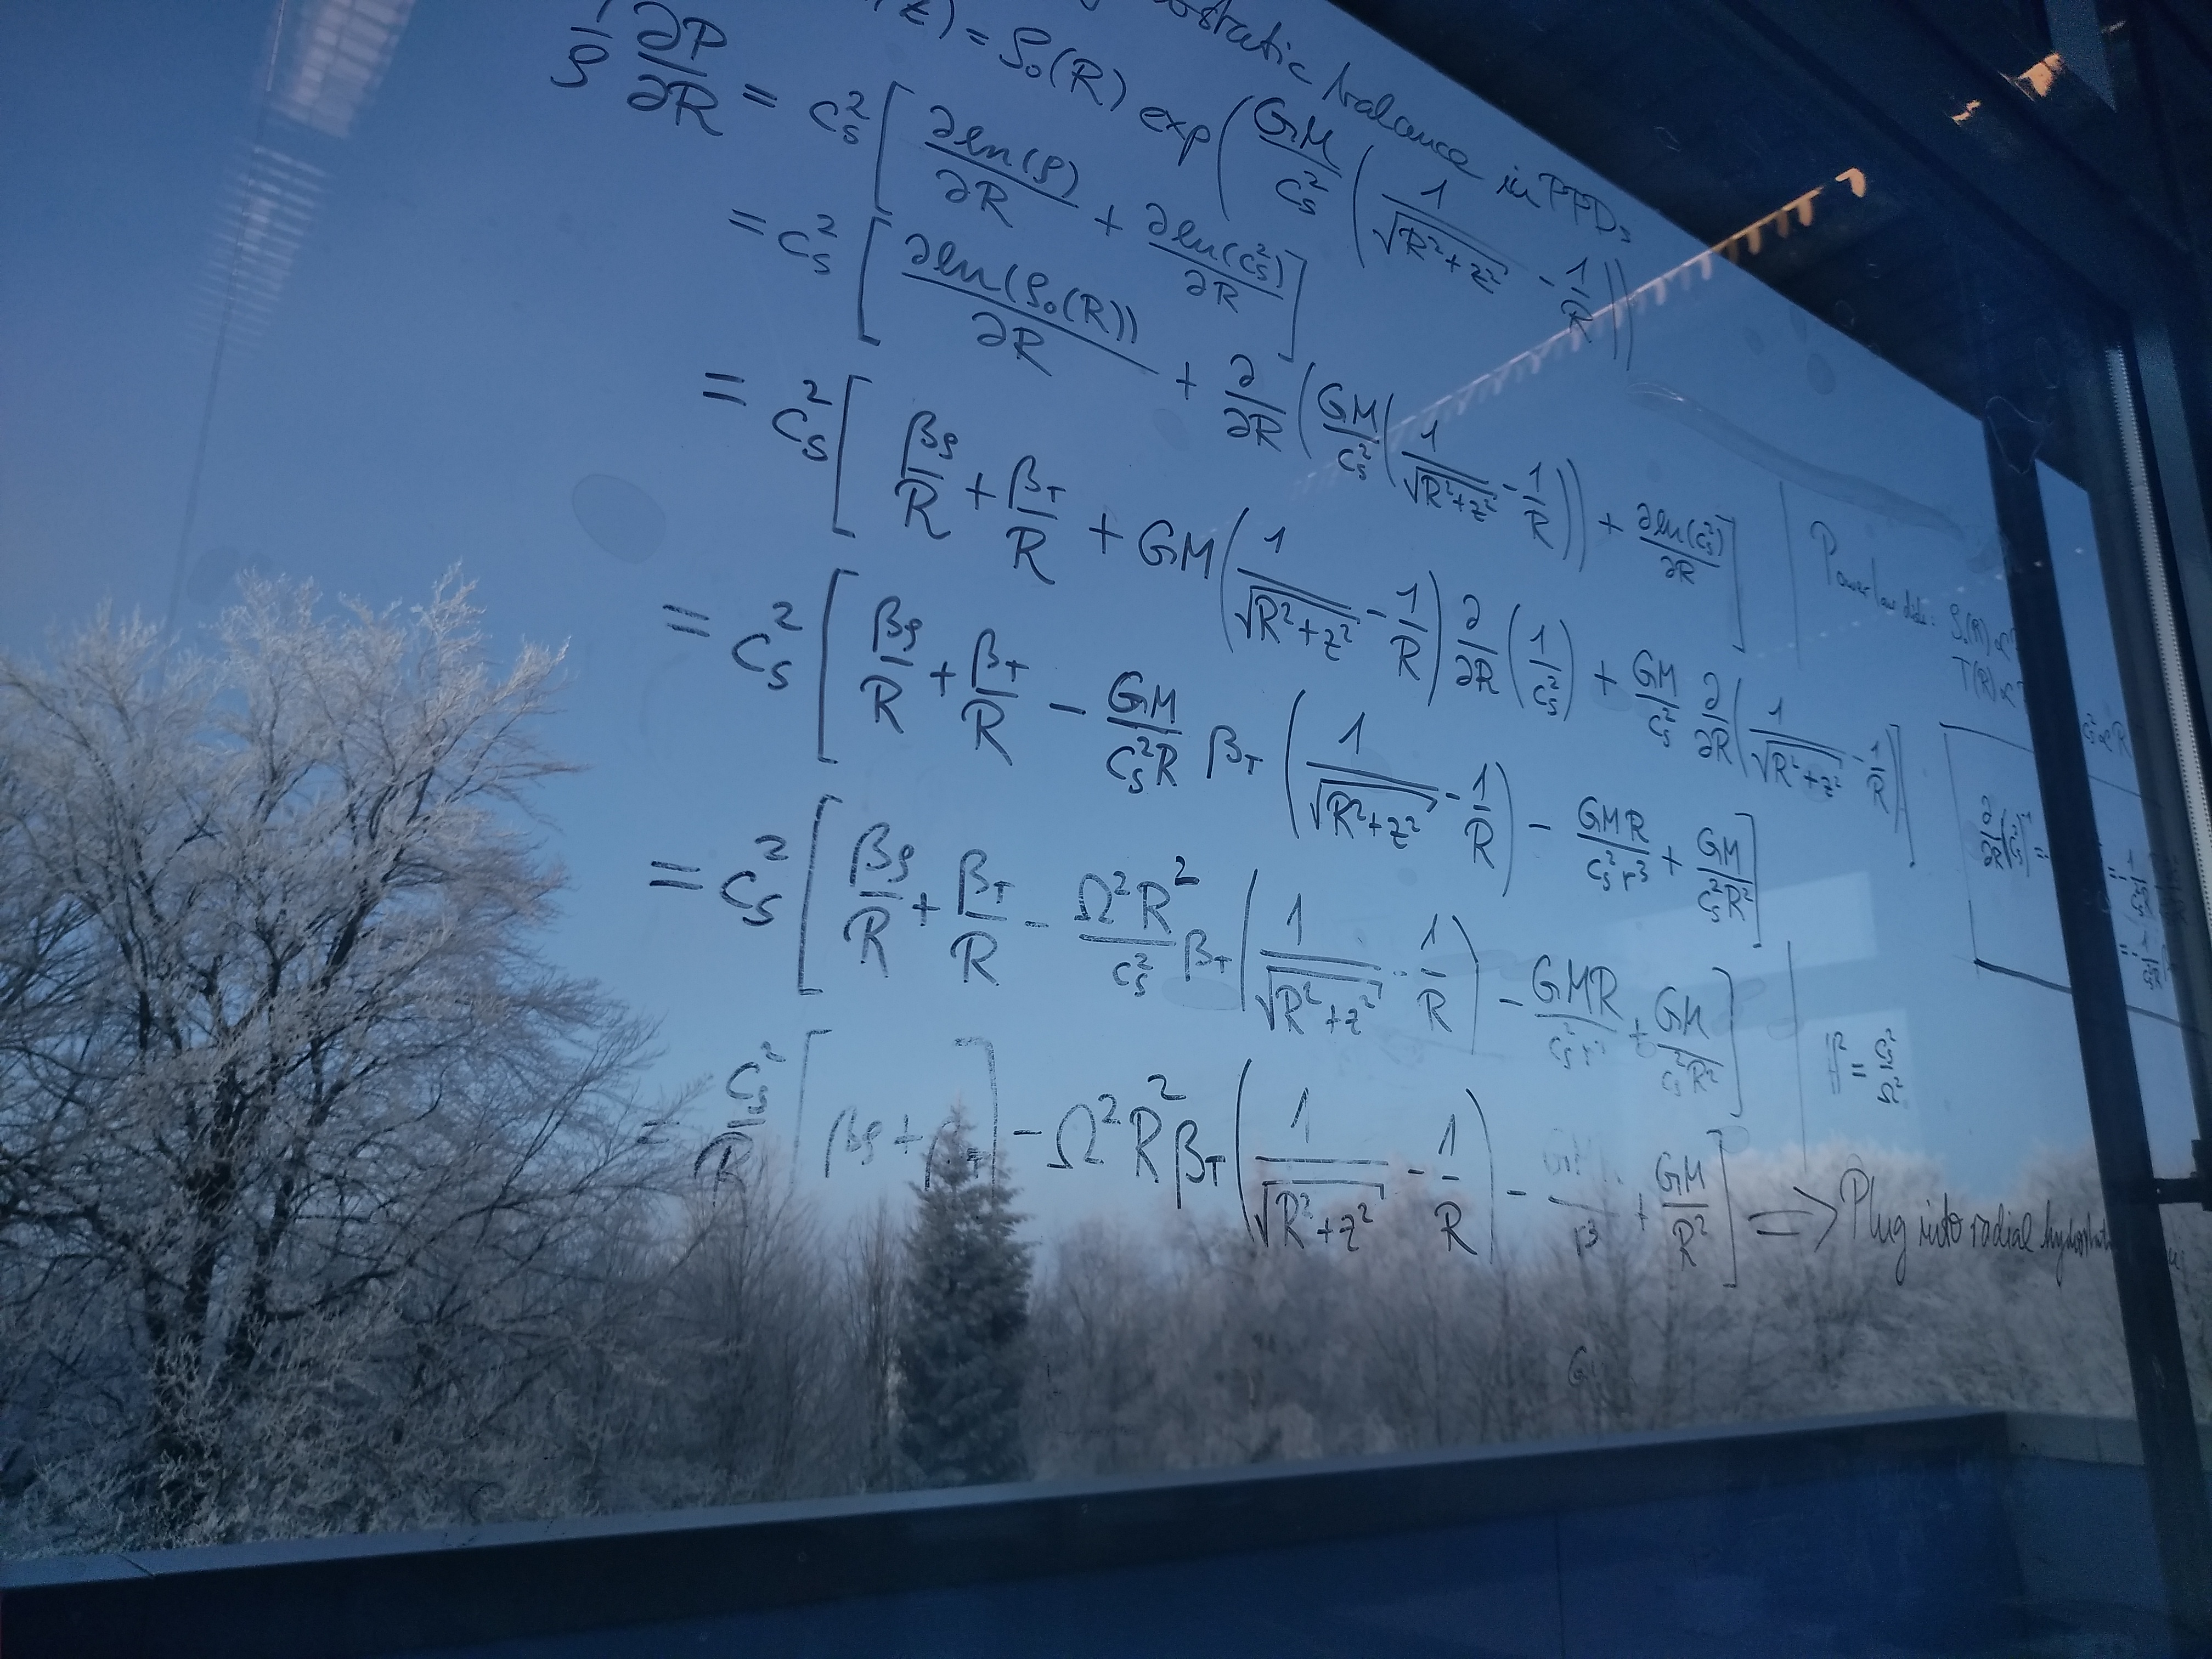 balance in PPDs
= ρ₀(R) exp(GM/c_s² (1/√(R²+z²) - 1/R))
1/ρ ∂P/∂R = c_s² [∂ln(ρ)/∂R + ∂ln(c_s²)/∂R]
= c_s² [∂ln(ρ₀(R))/∂R + ∂/∂R (GM/c_s² (1/√(R²+z²) - 1/R)) + ∂ln(c_s²)/∂R]
= c_s² [β_ρ/R + β_T/R + GM(1/√(R²+z²) - 1/R) ∂/∂R (1/c_s²) + GM/c_s² ∂/∂R (1/√(R²+z²) - 1/R)]
= c_s² [β_ρ/R + β_T/R - GM/(c_s²R) β_T (1/√(R²+z²) - 1/R) - GMR/(c_s²r³) + GM/(c_s²R²)]
= c_s² [β_ρ/R + β_T/R - Ω²R²/c_s² β_T (1/√(R²+z²) - 1/R) - GMR/(c_s²r³) + GM/(c_s²R²)]
= c_s²/R [β_ρ + β_T] - Ω²R² β_T (1/√(R²+z²) - 1/R) - /r³ + GM/R²] ⟹ Plug into radial
Power law
ρ₀(R) ∝
T(R) ∝
c_s² ∝ R
∂/∂R (c_s²)⁻¹ =
H² = c_s²/Ω²